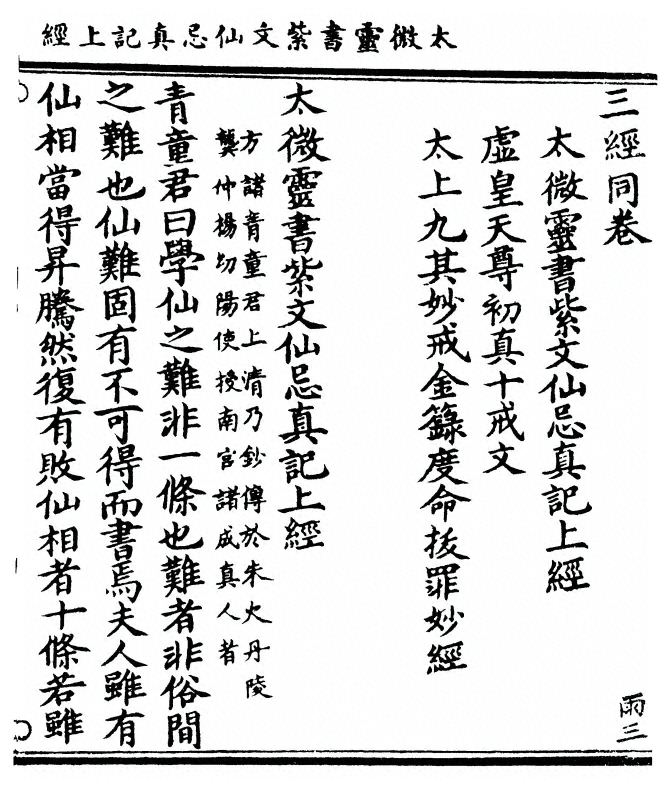 太微靈書紫文仙忌真記上經
三經同卷
雨三
太微靈書紫文仙忌真記上經
虛皇天尊初真十戒文
太上九真妙戒金籙度命拔罪妙經
太微靈書紫文仙忌真記上經
方諸青童君上清乃鈔傳於朱火丹陵
龔仲楊幼陽使授南宮諸成真人者
青童君曰學仙之難非一條也難者非俗間
之難也仙難固有不可得而書焉夫人雖有
仙相當得昇騰然復有敗仙相者十條若雖